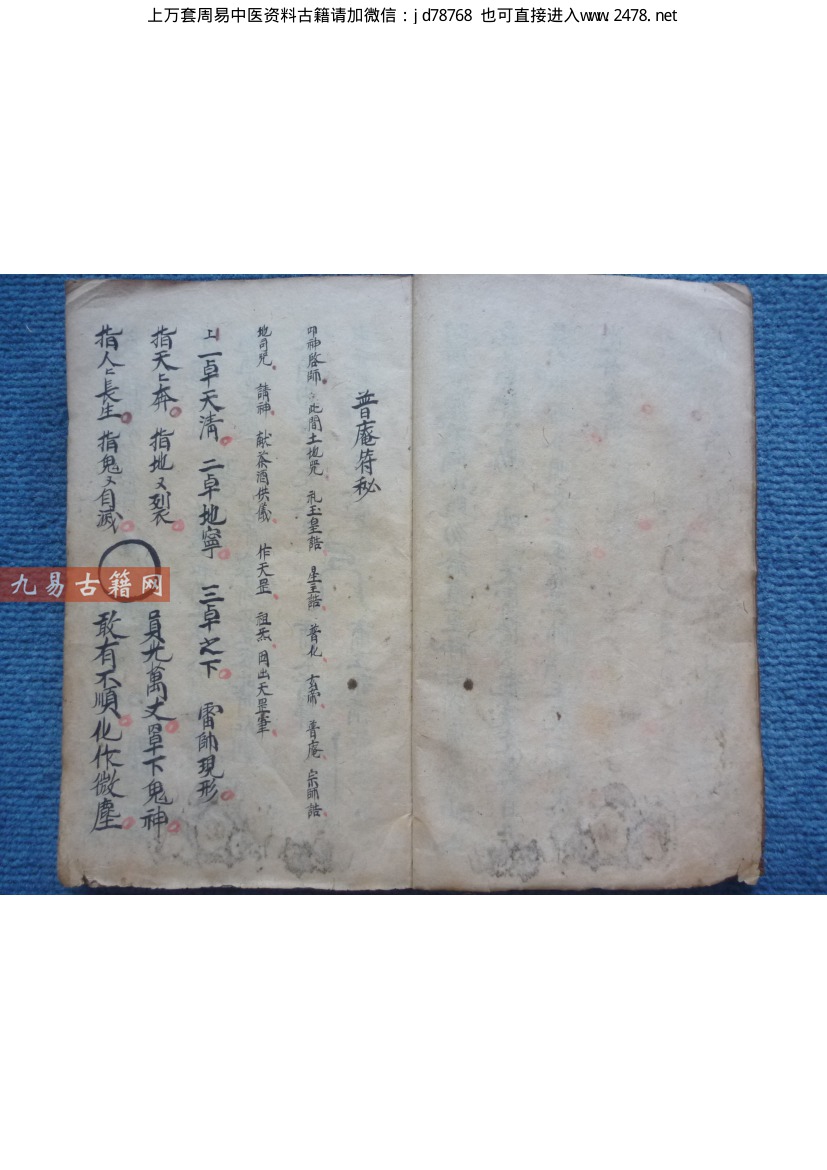 上万套周易中医资料古籍请加微信：jd78768 也可直接进入www.2478.net
普庵符秘
叩神啓師 此間土地咒 礼玉皇誥 星主誥 普化 玄帝 普庵 宗師誥
地司咒 請神 献茶酒供儀 作天罡 祖炁 因出天罡筆
上一卓天清 二卓地寧 三卓之下 雷帥現形
指天〻奔 指地又裂 員光萬丈罩下鬼神
指人〻長生 指鬼又自滅 敢有不順化作微塵
九易古籍网